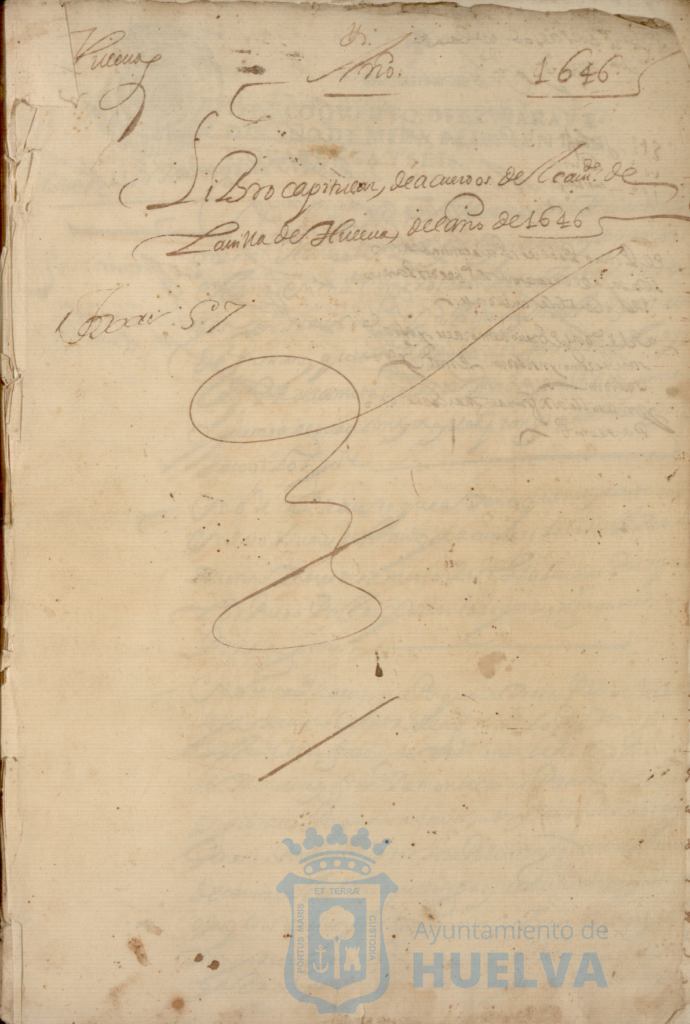 Huelva Año. 1646
Libro capitular, de acuerdos del cavdo. de
La villa de Huelva, del año de 1646
ET TERRÆ
PORTUS MARIS
CUSTODIA
Ayuntamiento de
HUELVA